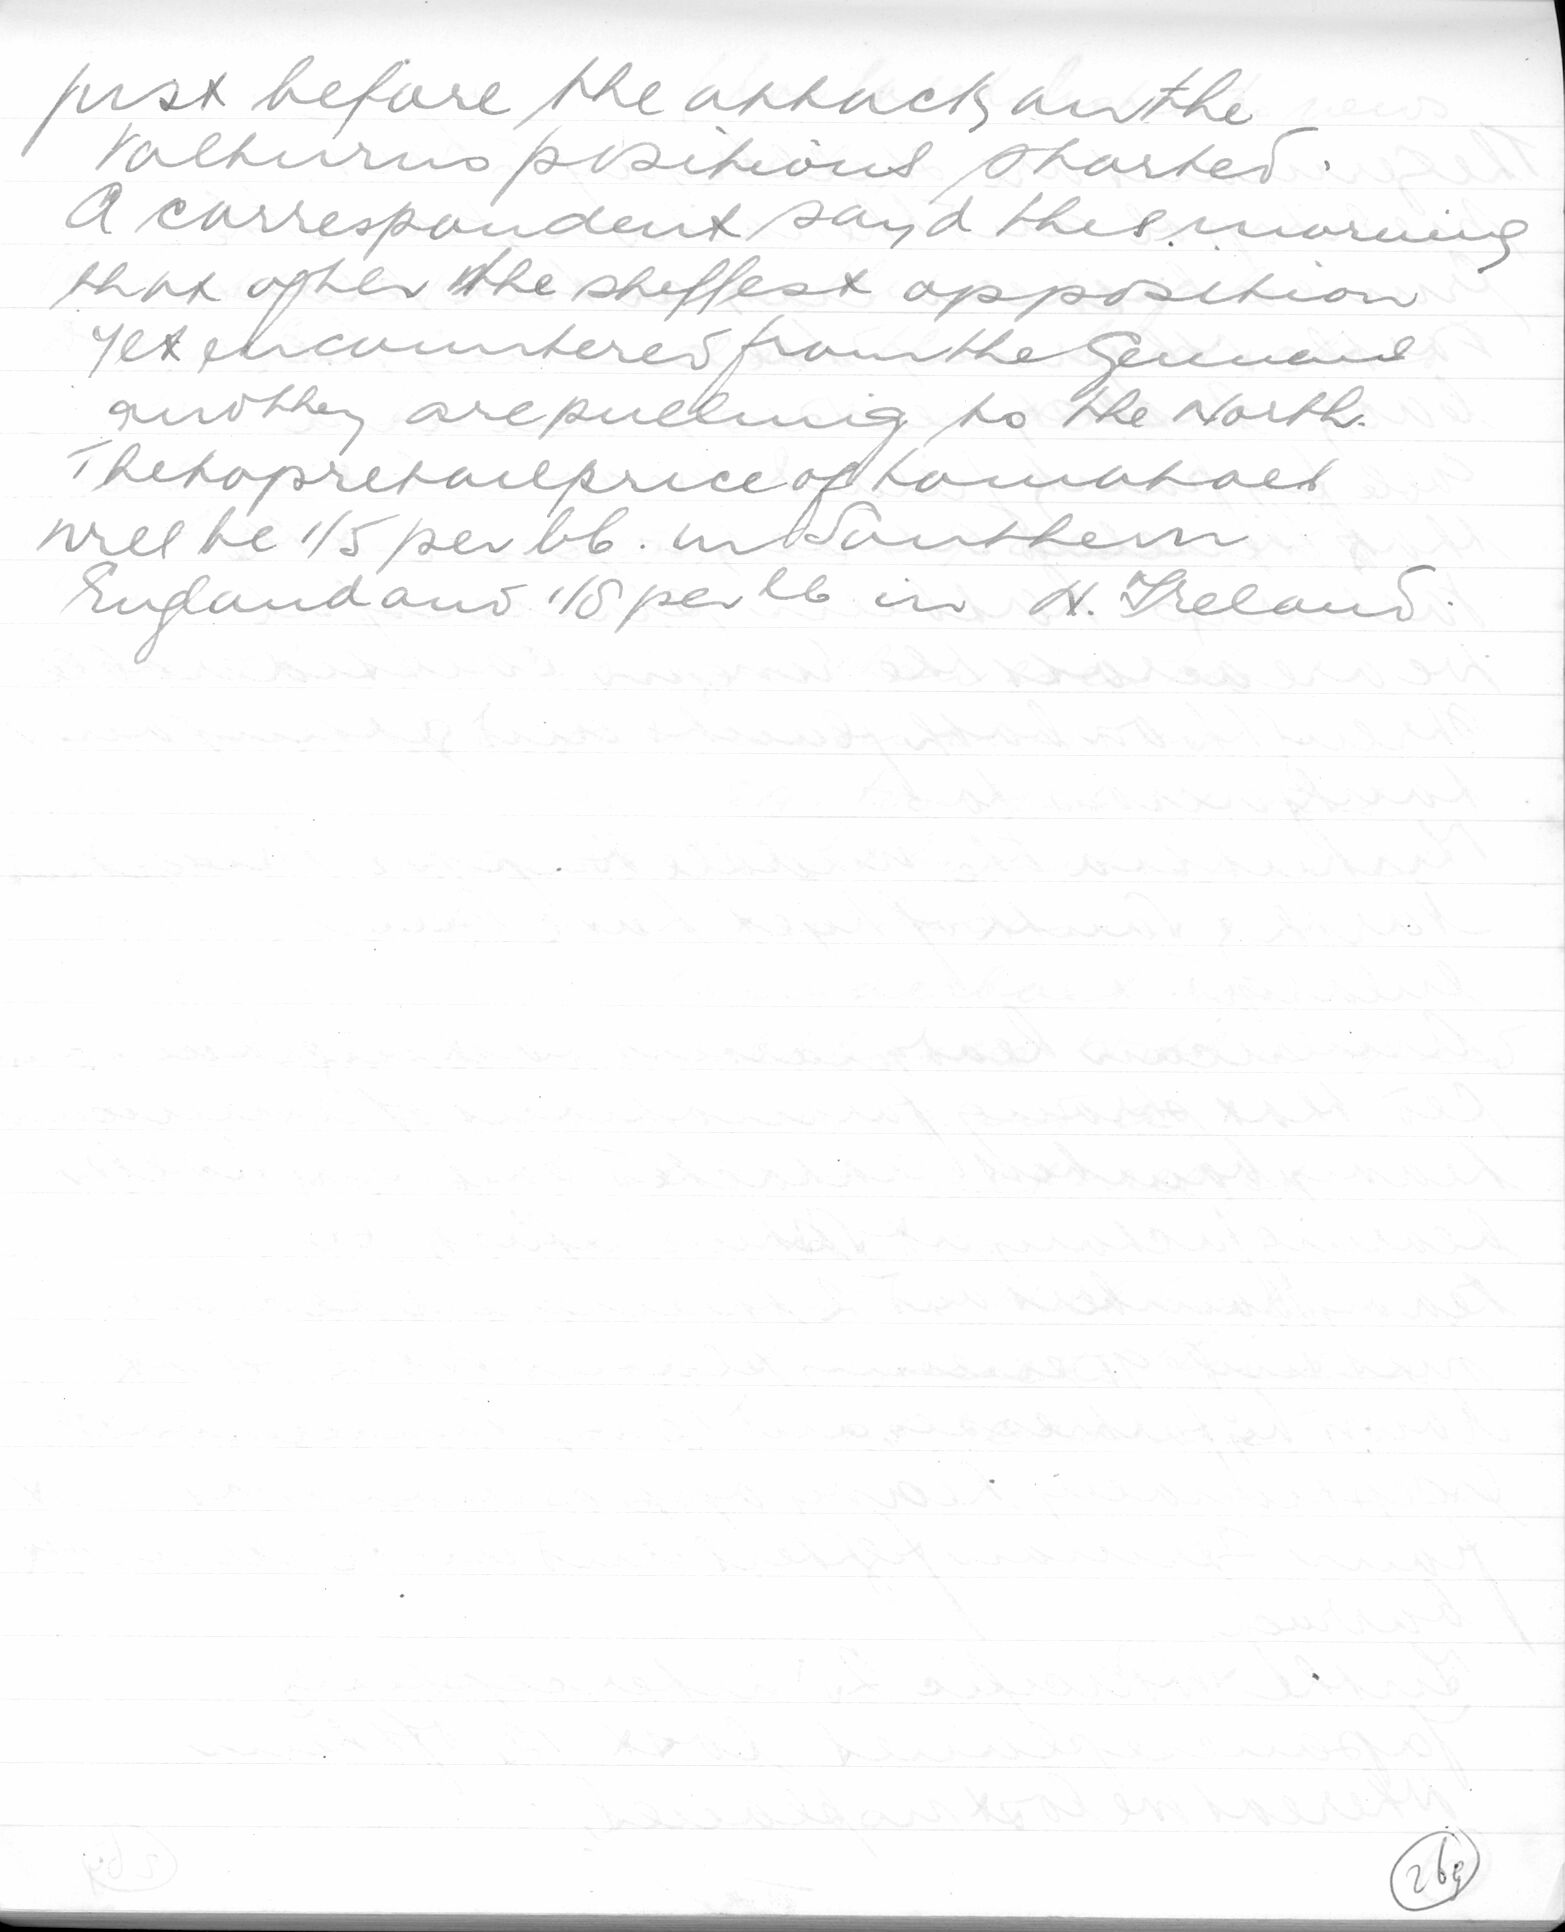 just before the attack on the
Valturno positions started.
A correspondent say'd this morning
that after the stiffest opposition
yet encountered from the Germans
and they are pulling to the North.
The top retail price of tomatoes
will be 1/5 per lb. in Southern
England and 1/8 per lb in N. Ireland.
269